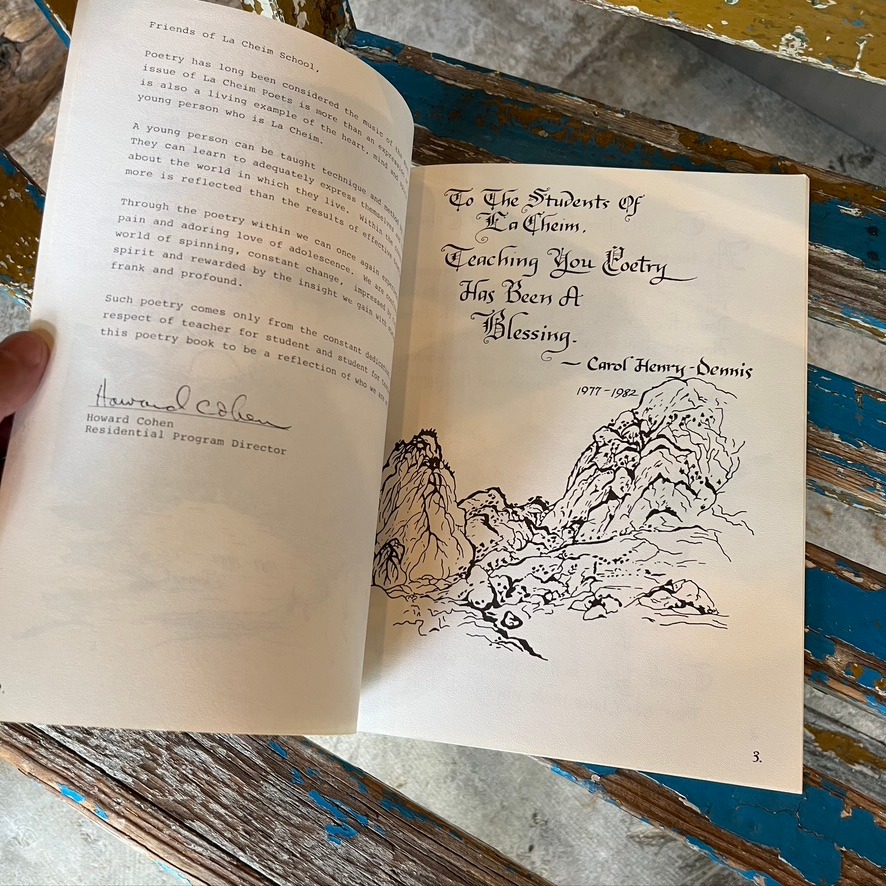 Friends of La Cheim School,
Poetry has long been considered the music of the
issue of La Cheim Poets is more than an expression
is also a living example of the heart, mind and
young person who is La Cheim.
A young person can be taught technique and method
They can learn to adequately express themselves
about the world in which they live. Within the
more is reflected than the results of effective
Through the poetry within we can once again experience
pain and adoring love of adolescence. We are
world of spinning, constant change, impressed by
spirit and rewarded by the insight we gain with
frank and profound.
Such poetry comes only from the constant dedication
respect of teacher for student and student for
this poetry book to be a reflection of who we are
Howard Cohen
Howard Cohen
Residential Program Director
To The Students Of
La Cheim,
Teaching You Poetry
Has Been A
Blessing.
— Carol Henry-Dennis
1977-1982
3.